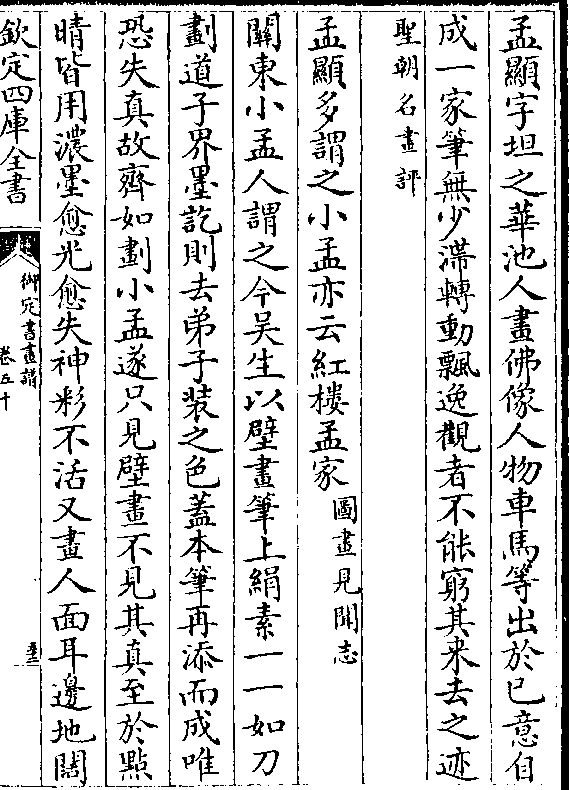 孟顯字坦之華池人畫佛像人物車馬等出於已意自
成一家筆無少滯轉動飄逸觀者不能窮其来去之迹
聖朝名畫評
孟顯多謂之小孟亦云紅樓孟家圖畫見聞志
關東小孟人謂之今吳生以壁畫筆上絹素一一如刀
劃道子界墨訖則去弟子装之色蓋本筆再添而成唯
恐失真故齊如劃小孟遂只見壁畫不見其真至於點
睛皆用濃墨愈光愈失神彩不活又畫人面耳邊地闊
欽定四庫全書
御定書畫譜
卷五十